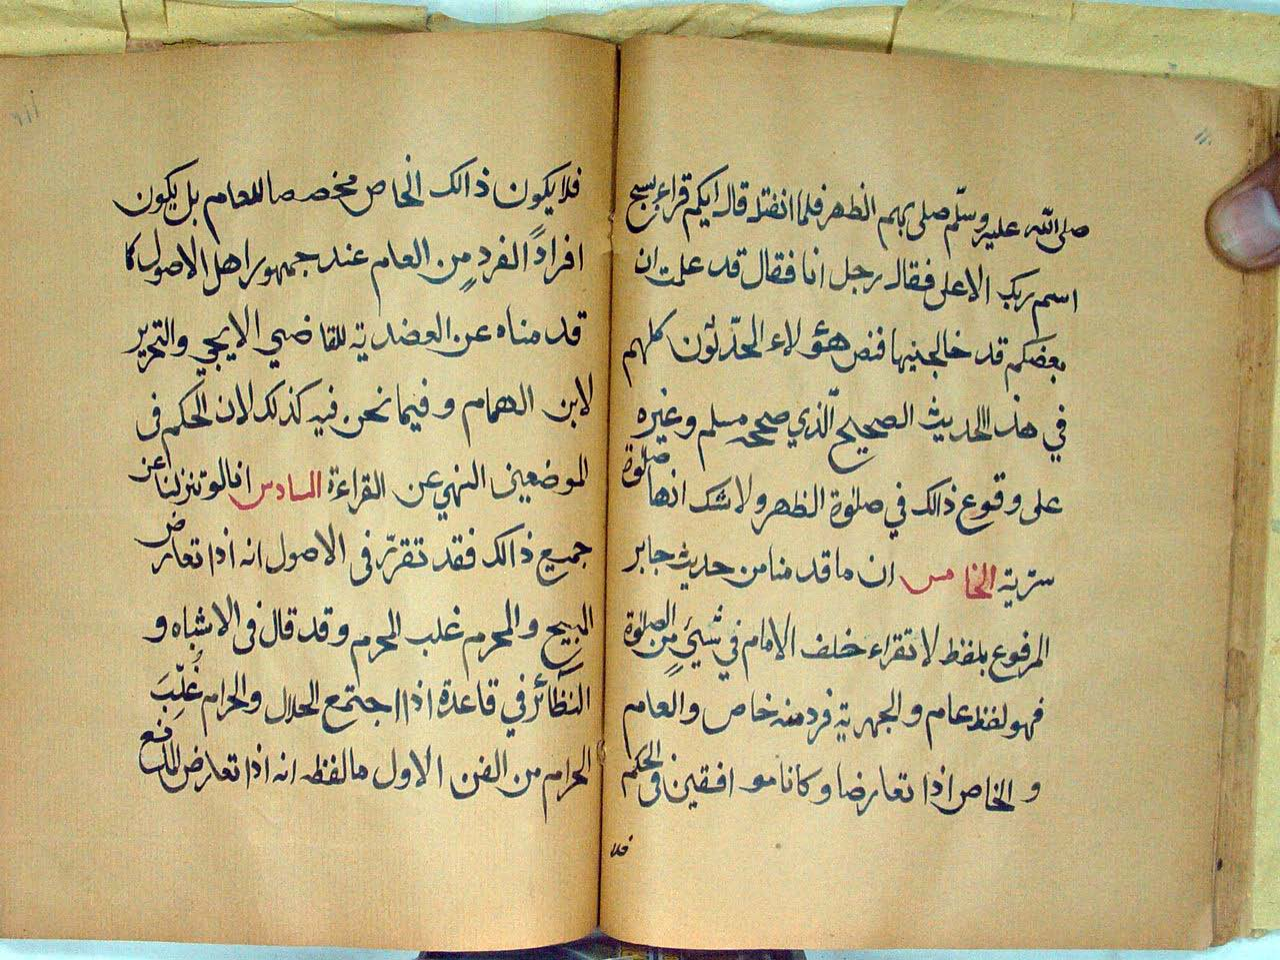 صلى الله عليه وسلّم صلى بهم الظهر فلما انفتل قال ايكم قراء بسبح
اسم ربك الاعلى فقال رجل انا فقال قد علمت ان
بعضكم قد خالجنيها فنص هؤلاء المحدّثون كلهم
في هذا الحديث الصحيح الّذي صححه مسلم وغيره
على وقوع ذالك في صلوة الظهر ولا شك انها صلوة
سرّية الخامس ان ما قدمنا من حديث جابر
المرفوع بلفظ لا تقراء خلف الامام في شيءٍ من الصلوة
فهو لفظ عام والجهرية فرد منه خاص والعام
والخاص اذا تعارضا وكانا موافقين فى الحكم
فلا
فلا يكون ذالك الخاص مخصصا للعام بل يكون
افرادًا لفردٍ من العام عند جمهور اهل الاصول كما
قدمناه عن العضدية للقاضي الايجي والتحرير
لابن الهمام وفيما نحن فيه كذلك لان الحكم فى
الموضعين النهي عن القراءة السادس انا لو تنزلنا عن
جميع ذالك فقد تقرّر فى الاصول انه اذا تعارض
المبيح والمحرم غلب المحرم وقد قال فى الاشباه و
النظائر في قاعدة اذا اجتمع الحلال والحرام غُلِّبَ
الحرام من الفن الاول ما لفظه انه اذا تعارض